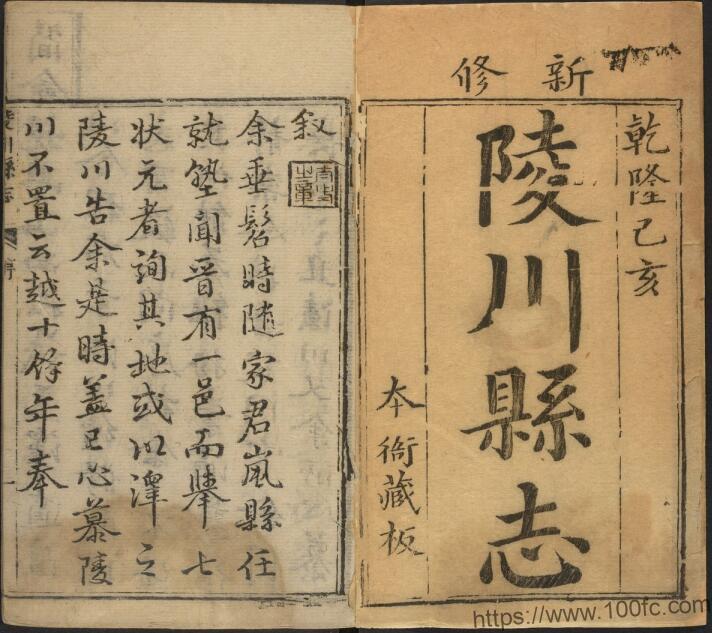 新修
乾隆己亥
陵川縣志
本衙藏板
叙
余垂髫時随家君嵐縣任
就塾聞晉有一邑而舉七
状元者詢其地或以澤之
陵川告余是時盖已心慕陵
川不置云越十餘年奉
陵川縣志
序
一
https://www.100fc.com